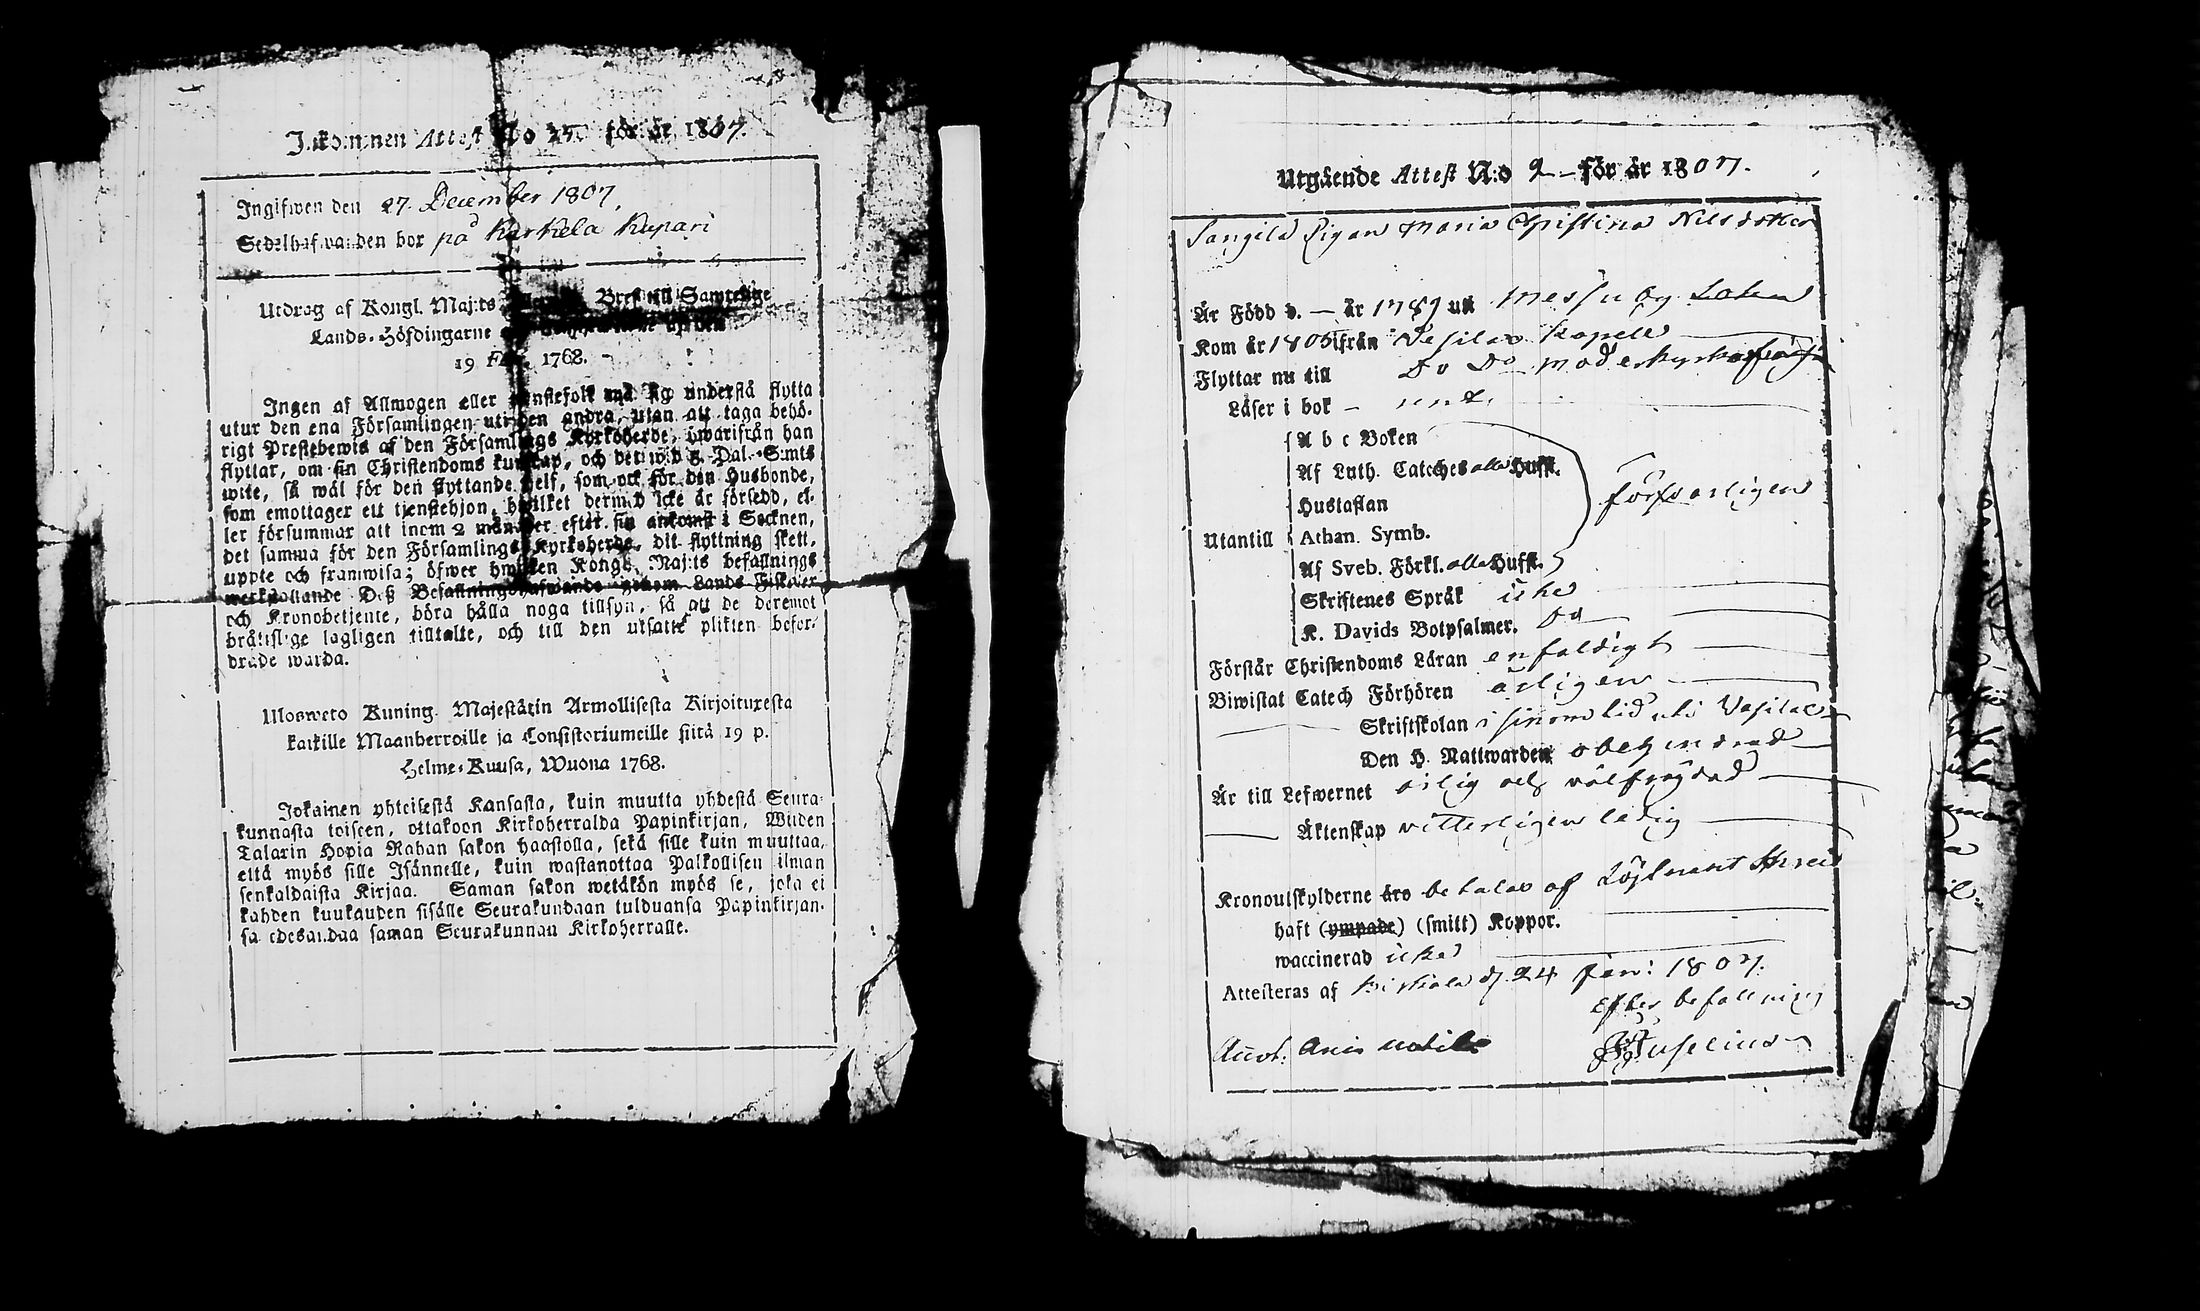 Inkommen Attest No 25 för år 1807.
Ingifwen den 27 December 1807,
Sedelhafwanden bor på Karkela Kupari
Utdrag af Kongl. Maj:ts Bref till Samtelige
Lands-Höfdingarne
19 Febr. 1768.
Ingen af Allmogen eller tjenstefolk må sig understå flytta
utur den ena Församlingen uti den andra, utan att taga behö-
rigt Prestebewis af den Församlings Kyrkoherde, hwarifrån han
flyttar, om sin Christendoms kunskap, och det wid 5. Dal. S:mts
wite, så wäl för den flyttande self, som ock för den Husbonde,
som emottager ett tjenstehjon, hwilket dermed icke är försedd, el-
ler försummar att inom 2 månader efter sin ankomst i Socknen,
det samma för den Församlings Kyrkoherde, dit flyttning skett,
uppte och framwisa; öfwer hwilken Kongl. Maj:ts befallnings
werkställande Deß Befallningshafwande genom Lands Fiskaler
och Kronobetjente, böra hålla noga tillsyn, så att de deremot
brättslige lagligen tilltalte, och till den utsatte plikten befor-
drade warda.
Ulosweto Kuning. Majestätin Armollisesta Kirjoituxesta
kaikille Maanherroille ja Consistoriumeille siitä 19 p.
Helme-Kuusa, Wuona 1768.
Jokainen yhteisestä Kansasta, kuin muutta yhdestä Seura-
kunnasta toiseen, ottakoon Kirkoherralda Papinkirjan, Wiiden
Talarin Hopia Rahan sakon haastolla, sekä sille kuin muuttaa,
että myös sille Isännelle, kuin wastanottaa Palkollisen ilman
senkaldaista Kirjaa. Saman sakon wetäkön myös se, joka ei
kahden kuukauden sisälle Seurakundaan tulduansa Papinkirjan-
sa edesandaa saman Seurakunnan Kirkoherralle.
Utgående Attest N:o 2 – för år 1807.
Pigan Maria Christina Nilsdotter
Är Född d. — år 1789 uti Messuby Sokn
Kom år 1805 ifrån Vesilax Kapell
Flyttar nu till Do Do moderkyrkoförs
Läser i bok – rent.
A b c Boken
Af Luth. Cateches alla Hufst.
Hustaflan
försvarligen
Utantill Athan. Symb.
Af Sveb. Förkl. alla Hufst.
Skriftenes Språk icke
K. Davids Botpsalmer. Do
Förstår Christendoms Läran enfaldigt
Biwistat Catech Förhören årligen
Skriftskolan i sinom tid uti Vesilax
Den H. Nattwarden obehindrad
Är till Lefwernet ärlig och välfrägdad
Äktenskap vitterligen ledig
Kronoutskylderne äro betalas af Löjtnant
haft (ympade) (smitt) Koppor.
waccinerad icke
Attesteras af Birkala d. 24 Jan: 1807.
efter befallning